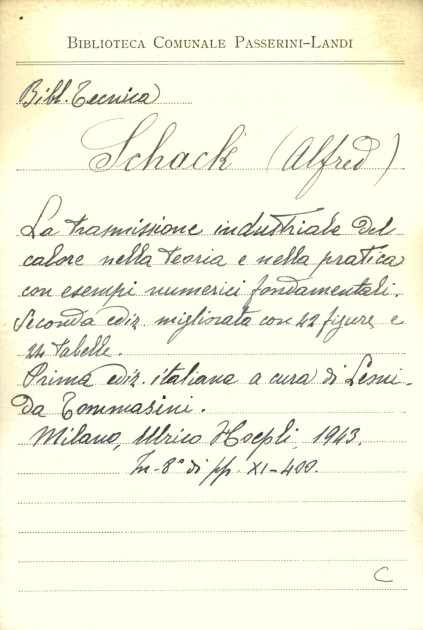 BIBLIOTECA COMUNALE PASSERINI-LANDI
Bibl. Tecnica
Schack (Alfred)
La trasmissione industriale del
calore nella teoria e nella pratica
con esempi numerici fondamentali.
Seconda ediz. migliorata con 42 figure e
24 tabelle.
Prima ediz. italiana a cura di Leoni-
da Tommasini.
Milano, Ulrico Hoepli, 1943.
In-8° di pp. XI-400.
C